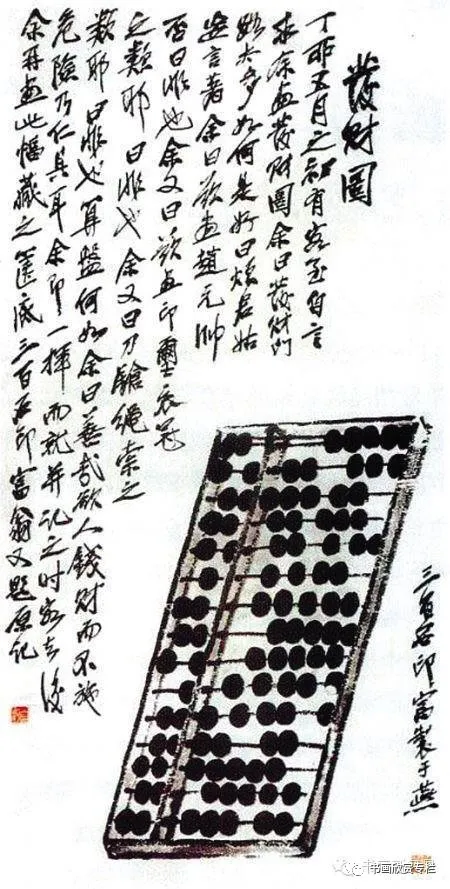 發財圖
丁卯五月之初有客至自言
求余畫發財圖余曰發財門
路太多如何是好曰煩君姑
妄言著余曰欲畫趙元帥
否曰非也余又曰欲畫印璽衣冠
之類耶曰非也余又曰刀鎗繩索之
類耶曰非也算盤何如余曰善哉欲人錢財而不施
危險乃仁具耳余即一揮而就并記之時客去後
余再畫此幅藏之篋底三百石印富翁又題原記
三百石印富製于燕
书画欣赏专栏